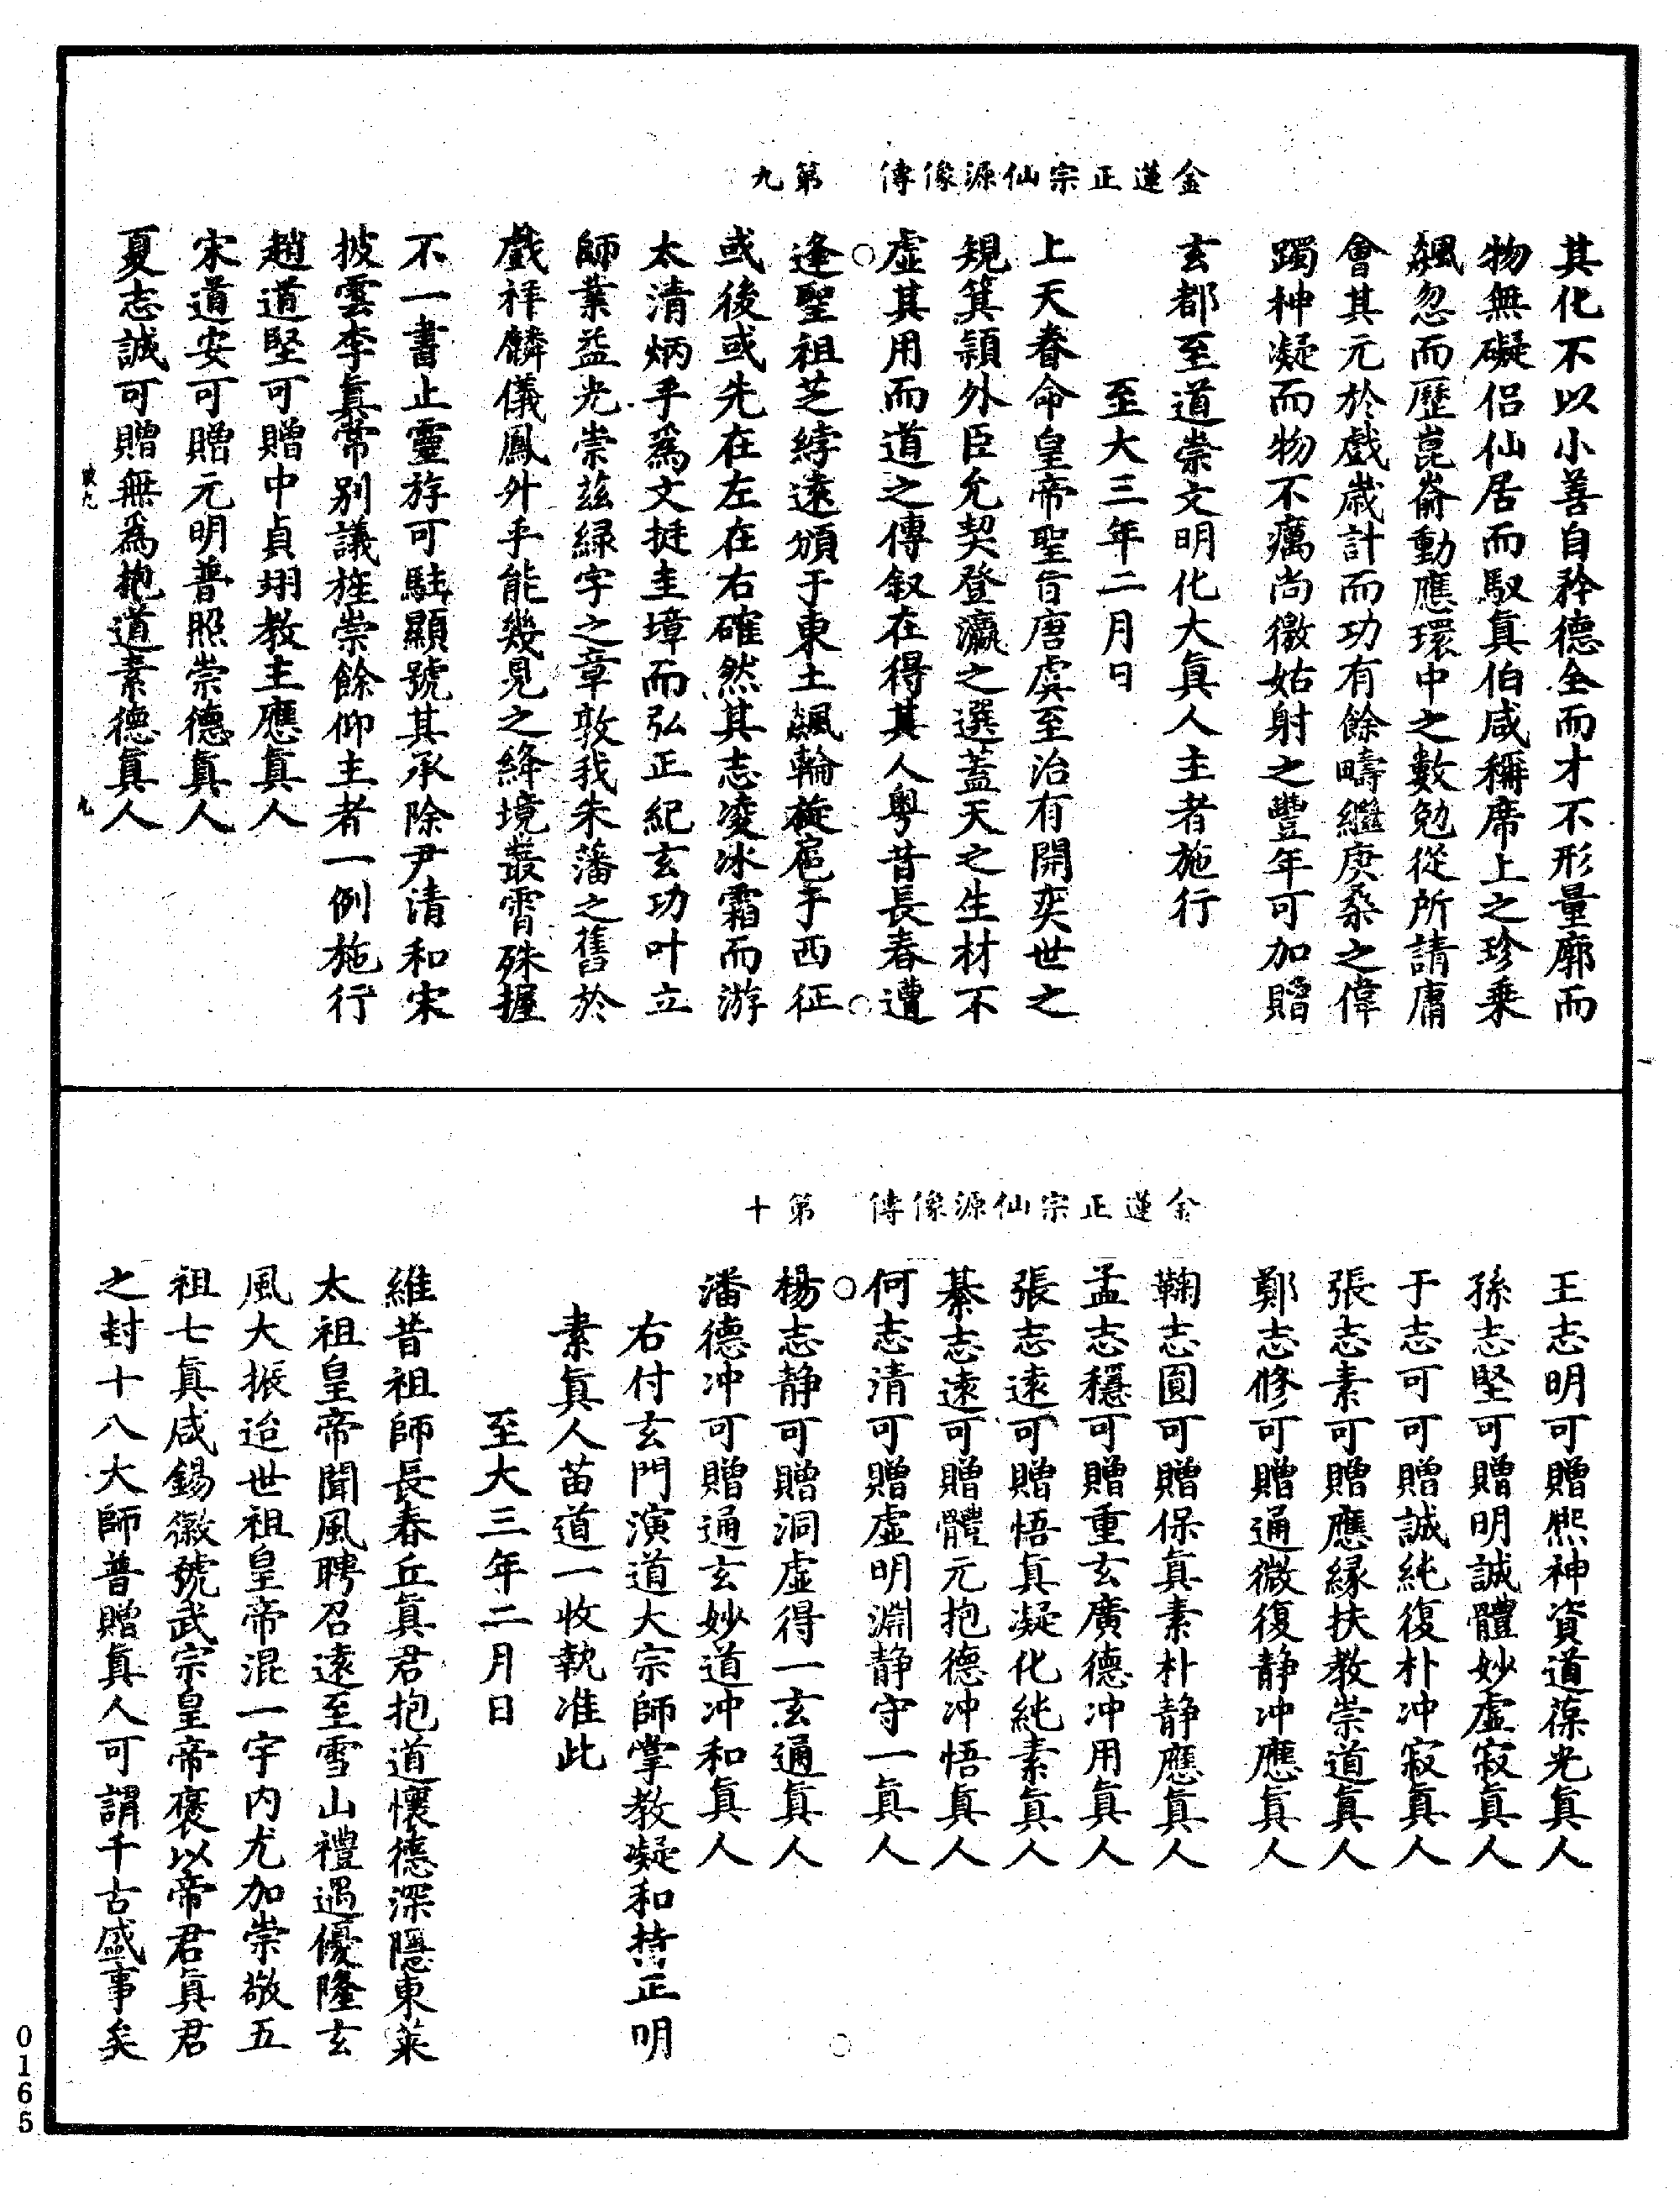 金蓮正宗仙源像傳　第九
其化不以小善自矜德全而才不形量廓而
物無礙侣仙居而馭眞伯咸稱席上之珍乘
飆忽而歷崑崙動應環中之數勉從所請庸
會其元於戲歲計而功有餘疇繼庚桑之偉
躅神凝而物不癘尚徼姑射之豐年可加贈
玄都至道崇文明化大眞人主者施行
至大三年二月日
上天眷命皇帝聖旨唐虞至治有開奕世之
規箕穎外臣允契登瀛之選蓋天之生材不
虛其用而道之傳叙在得其人粤昔長春遭
逢聖祖芝綍遠頒于東土飆輪旋扈于西征
或後或先在左在右確然其志凌冰霜而游
太清炳乎爲文挺圭璋而弘正紀玄功叶立
師業益光崇兹緑字之章敦我朱藩之舊於
戲祥麟儀鳳外乎能幾見之絳境叢霄殊握
不一書止靈斿可駐顯號其承除尹清和宋
披雲李眞常别議旌崇餘仰主者一例施行
趙道堅可贈中貞翊教主應眞人
宋道安可贈元明普照崇德眞人
夏志誠可贈無爲抱道素德眞人
九
金蓮正宗仙源像傳　第十
王志明可贈熙神資道葆光眞人
孫志堅可贈明誠體妙虛寂眞人
于志可可贈誠純復朴冲寂眞人
張志素可贈應緣扶教崇道眞人
鄭志修可贈通微復静冲應眞人
鞠志圓可贈保眞素朴静應眞人
孟志穩可贈重玄廣德冲用眞人
張志遠可贈悟眞凝化純素眞人
綦志遠可贈體元抱德冲悟眞人
何志清可贈虛明淵静守一眞人
楊志静可贈洞虛得一玄通眞人
潘德冲可贈通玄妙道冲和眞人
右付玄門演道大宗師掌教凝和持正明
素眞人苗道一收執准此
至大三年二月日
維昔祖師長春丘眞君抱道懷德深隱東萊
太祖皇帝聞風聘召遠至雪山禮遇優隆玄
風大振迨世祖皇帝混一宇内尤加崇敬五
祖七眞咸錫徽號武宗皇帝褒以帝君眞君
之封十八大師普贈眞人可謂千古盛事矣
0165